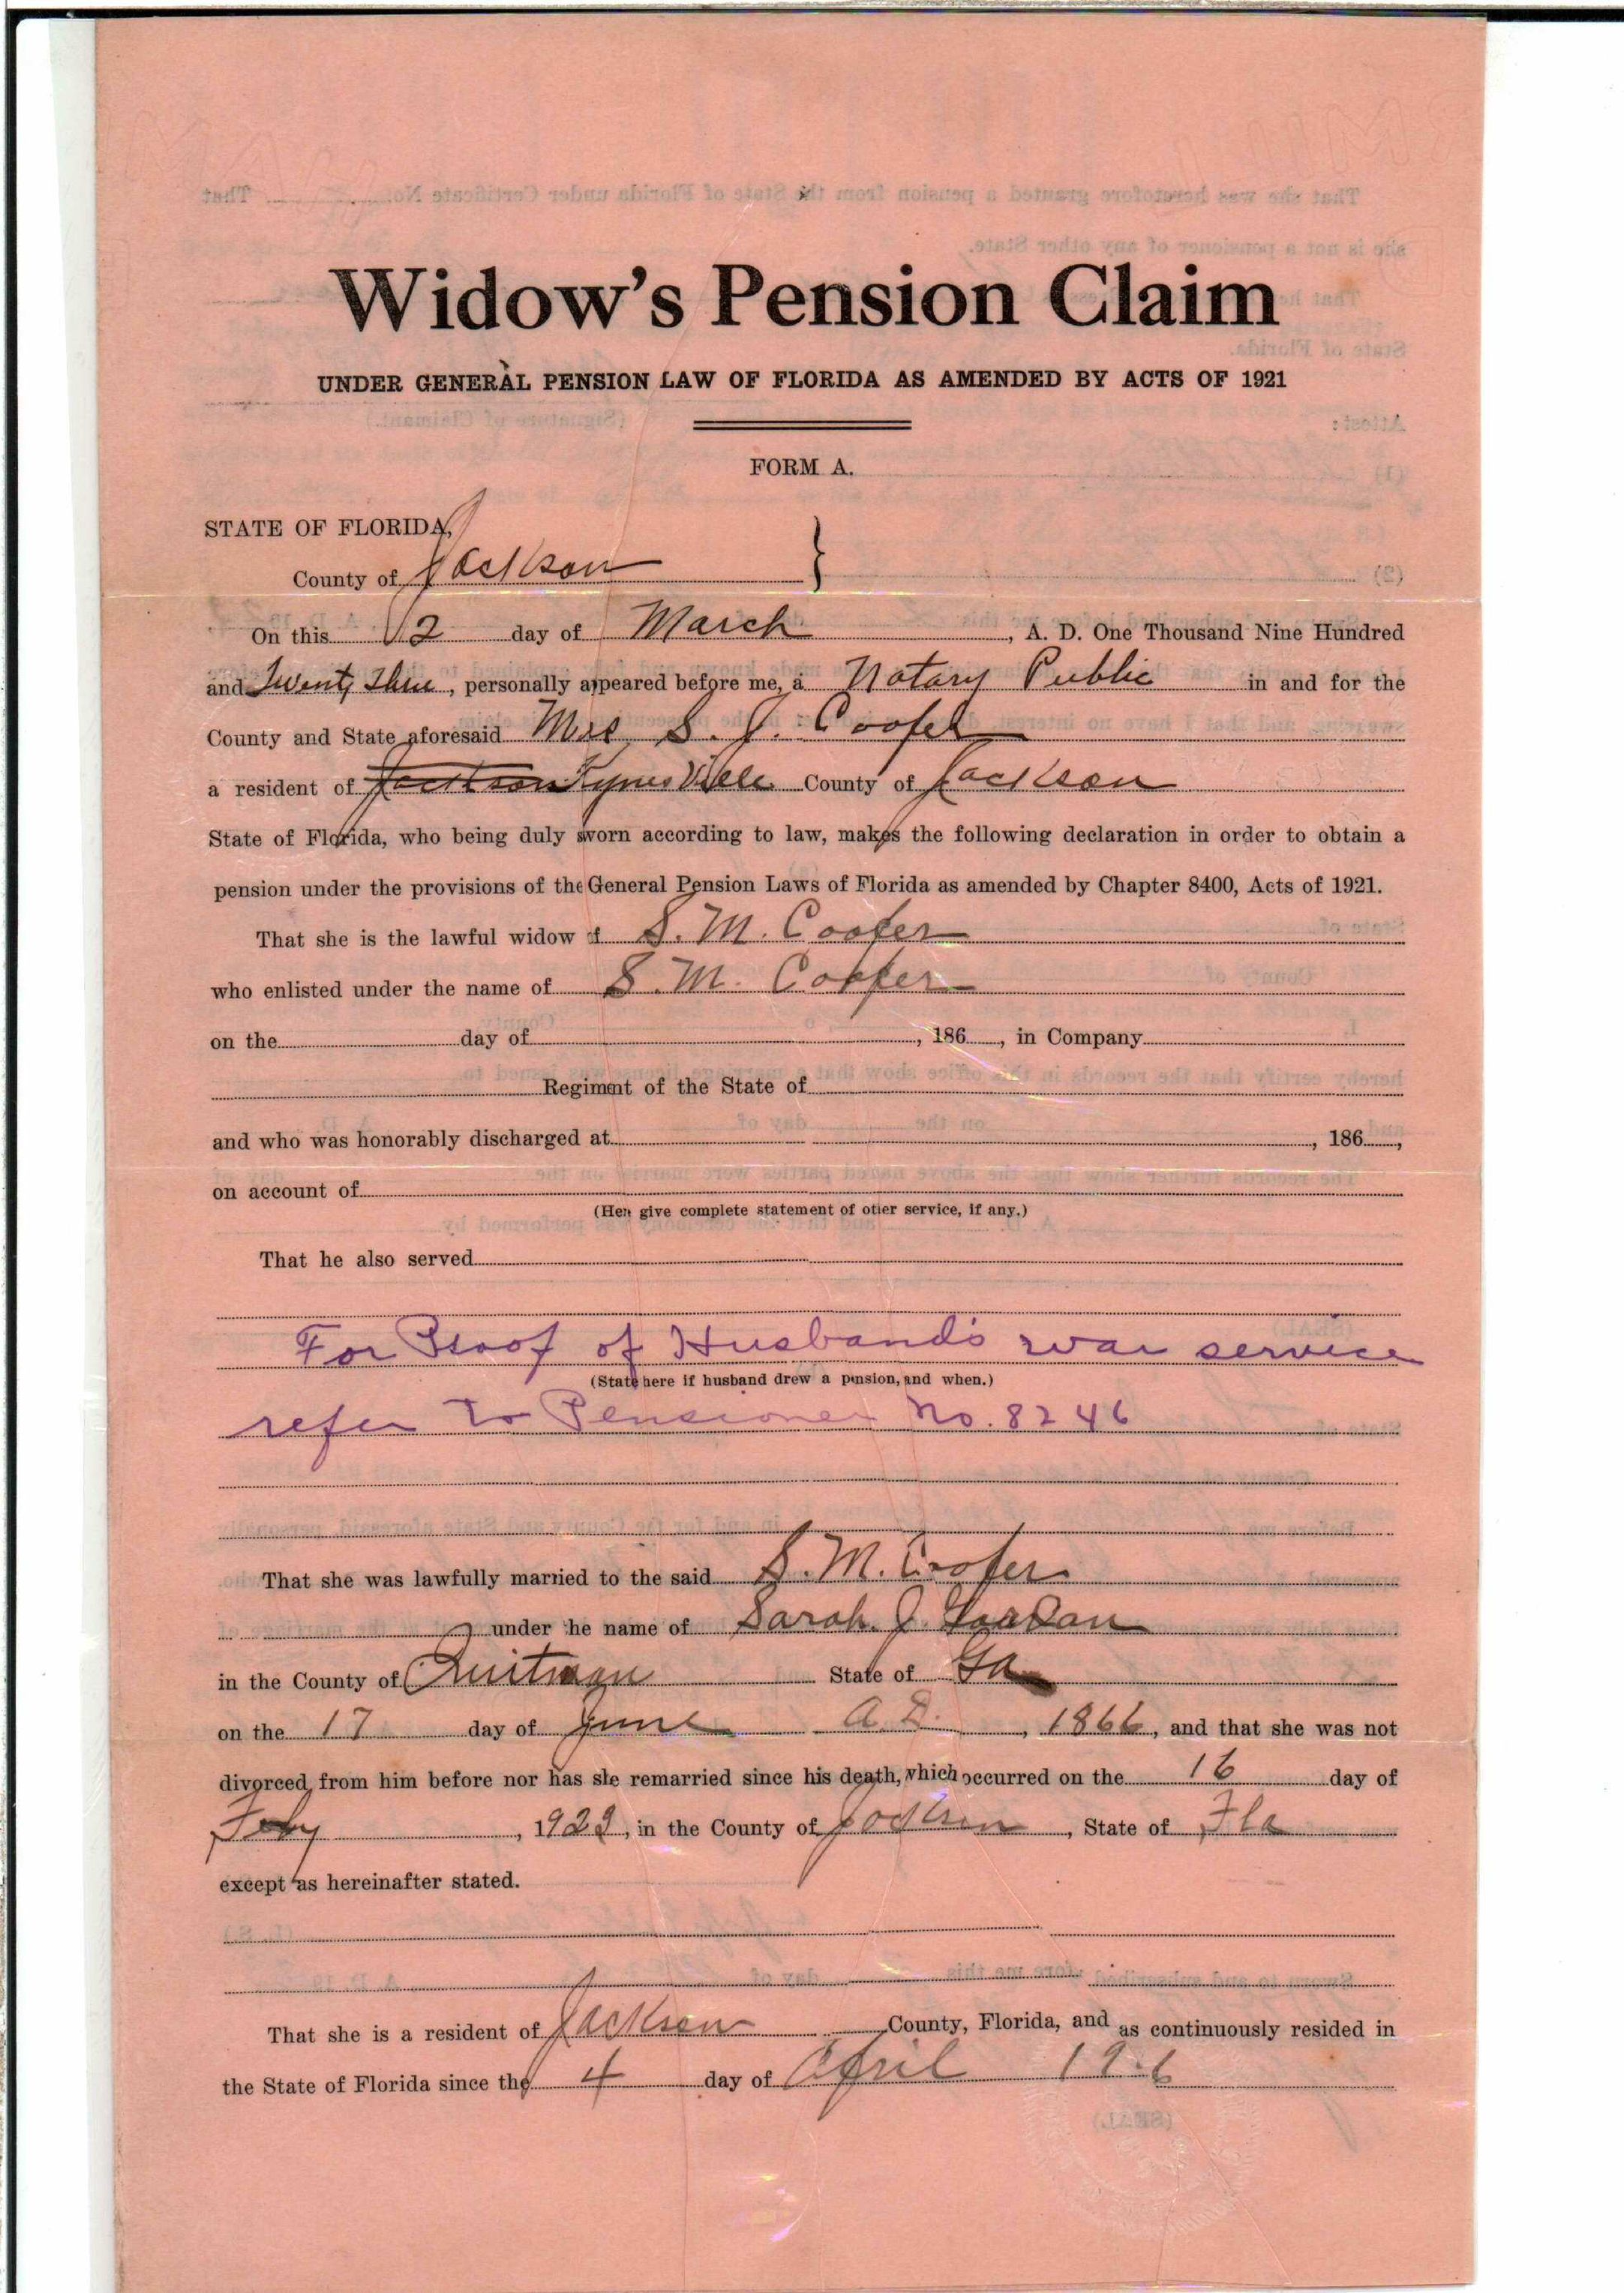 Widow's Pension Claim
UNDER GENERAL PENSION LAW OF FLORIDA AS AMENDED BY ACTS OF 1921
FORM A.
STATE OF FLORIDA,
County of Jackson }
On this 12 day of March, A. D. One Thousand Nine Hundred
and Twenty Three, personally appeared before me, a Notary Public in and for the
County and State aforesaid Mrs S. J. Cooper
a resident of Jackson Kynesville County of Jackson
State of Florida, who being duly sworn according to law, makes the following declaration in order to obtain a
pension under the provisions of the General Pension Laws of Florida as amended by Chapter 8400, Acts of 1921.
That she is the lawful widow of S. M. Cooper
who enlisted under the name of S. M. Cooper
on the day of , 186 , in Company
Regiment of the State of
and who was honorably discharged at , 186 ,
on account of
(Here give complete statement of other service, if any.)
That he also served
For Proof of Husband's war service
(State here if husband drew a pension, and when.)
refer to Pensioner No. 8246
That she was lawfully married to the said S. M. Cooper
under the name of Sarah J.
in the County of Quitman State of Ga
on the 17 day of June A D. , 1866, and that she was not
divorced from him before nor has she remarried since his death, which occurred on the 16 day of
Feby , 192 , in the County of Jackson , State of Fla
except as hereinafter stated.
That she is a resident of Jackson County, Florida, and as continuously resided in
the State of Florida since the 4 day of April